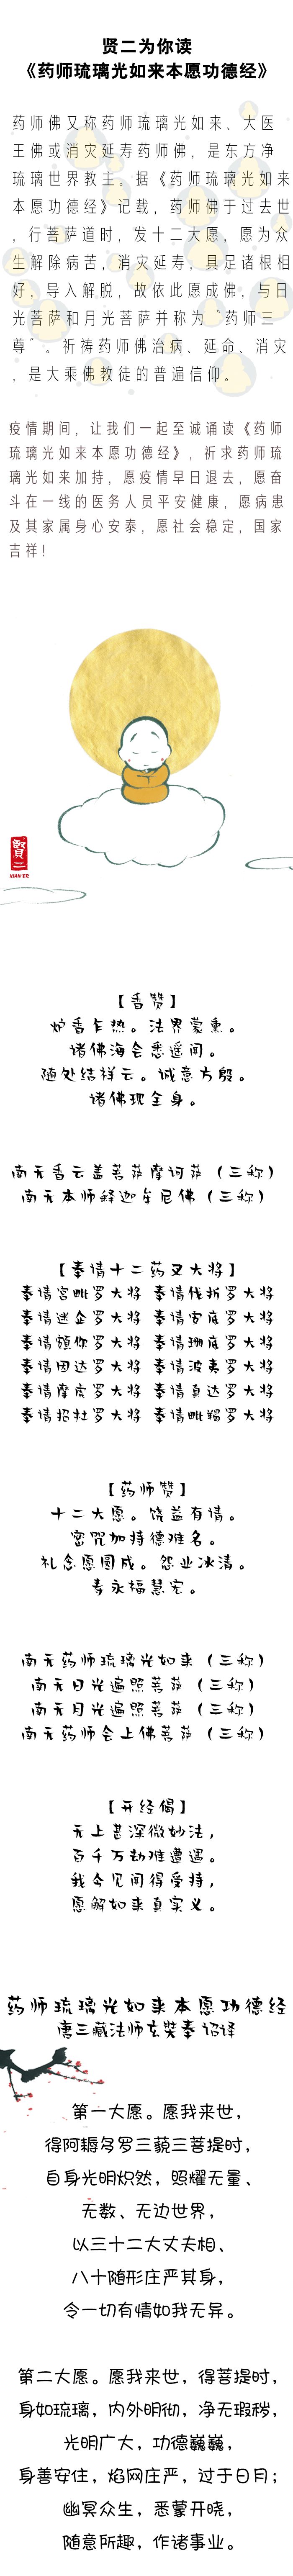 贤二为你读
《药师琉璃光如来本愿功德经》
药师佛又称药师琉璃光如来、大医
王佛或消灾延寿药师佛，是东方净
琉璃世界教主。据《药师琉璃光如来
本愿功德经》记载，药师佛于过去世
，行菩萨道时，发十二大愿，愿为众
生解除病苦，消灾延寿，具足诸根相
好，导入解脱，故依此愿成佛，与日
光菩萨和月光菩萨并称为“药师三
尊”。祈祷药师佛治病、延命、消灾
，是大乘佛教徒的普遍信仰。
疫情期间，让我们一起至诚诵读《药师
琉璃光如来本愿功德经》，祈求药师琉
璃光如来加持，愿疫情早日退去，愿奋
斗在一线的医务人员平安健康，愿病患
及其家属身心安泰，愿社会稳定，国家
吉祥！
賢二
XIAN'ER
【香赞】
炉香乍热。法界蒙熏。
诸佛海会悉遥闻。
随处结祥云。诚意方殷。
诸佛现全身。
南无香云盖菩萨摩诃萨（三称）
南无本师释迦牟尼佛（三称）
【奉请十二药叉大将】
奉请宫毗罗大将 奉请伐折罗大将
奉请迷企罗大将 奉请安底罗大将
奉请頞你罗大将 奉请珊底罗大将
奉请因达罗大将 奉请波夷罗大将
奉请摩虎罗大将 奉请真达罗大将
奉请招杜罗大将 奉请毗羯罗大将
【药师赞】
十二大愿。饶益有情。
密咒加持德难名。
礼念愿圆成。怨业冰清。
寿永福慧宏。
南无药师琉璃光如来（三称）
南无日光遍照菩萨（三称）
南无月光遍照菩萨（三称）
南无药师会上佛菩萨（三称）
【开经偈】
无上甚深微妙法，
百千万劫难遭遇。
我今见闻得受持，
愿解如来真实义。
药师琉璃光如来本愿功德经
唐三藏法师玄奘奉诏译
第一大愿。愿我来世，
得阿耨多罗三藐三菩提时，
自身光明炽然，照耀无量、
无数、无边世界，
以三十二大丈夫相、
八十随形庄严其身，
令一切有情如我无异。
第二大愿。愿我来世，得菩提时，
身如琉璃，内外明彻，净无瑕秽，
光明广大，功德巍巍，
身善安住，焰网庄严，过于日月；
幽冥众生，悉蒙开晓，
随意所趣，作诸事业。